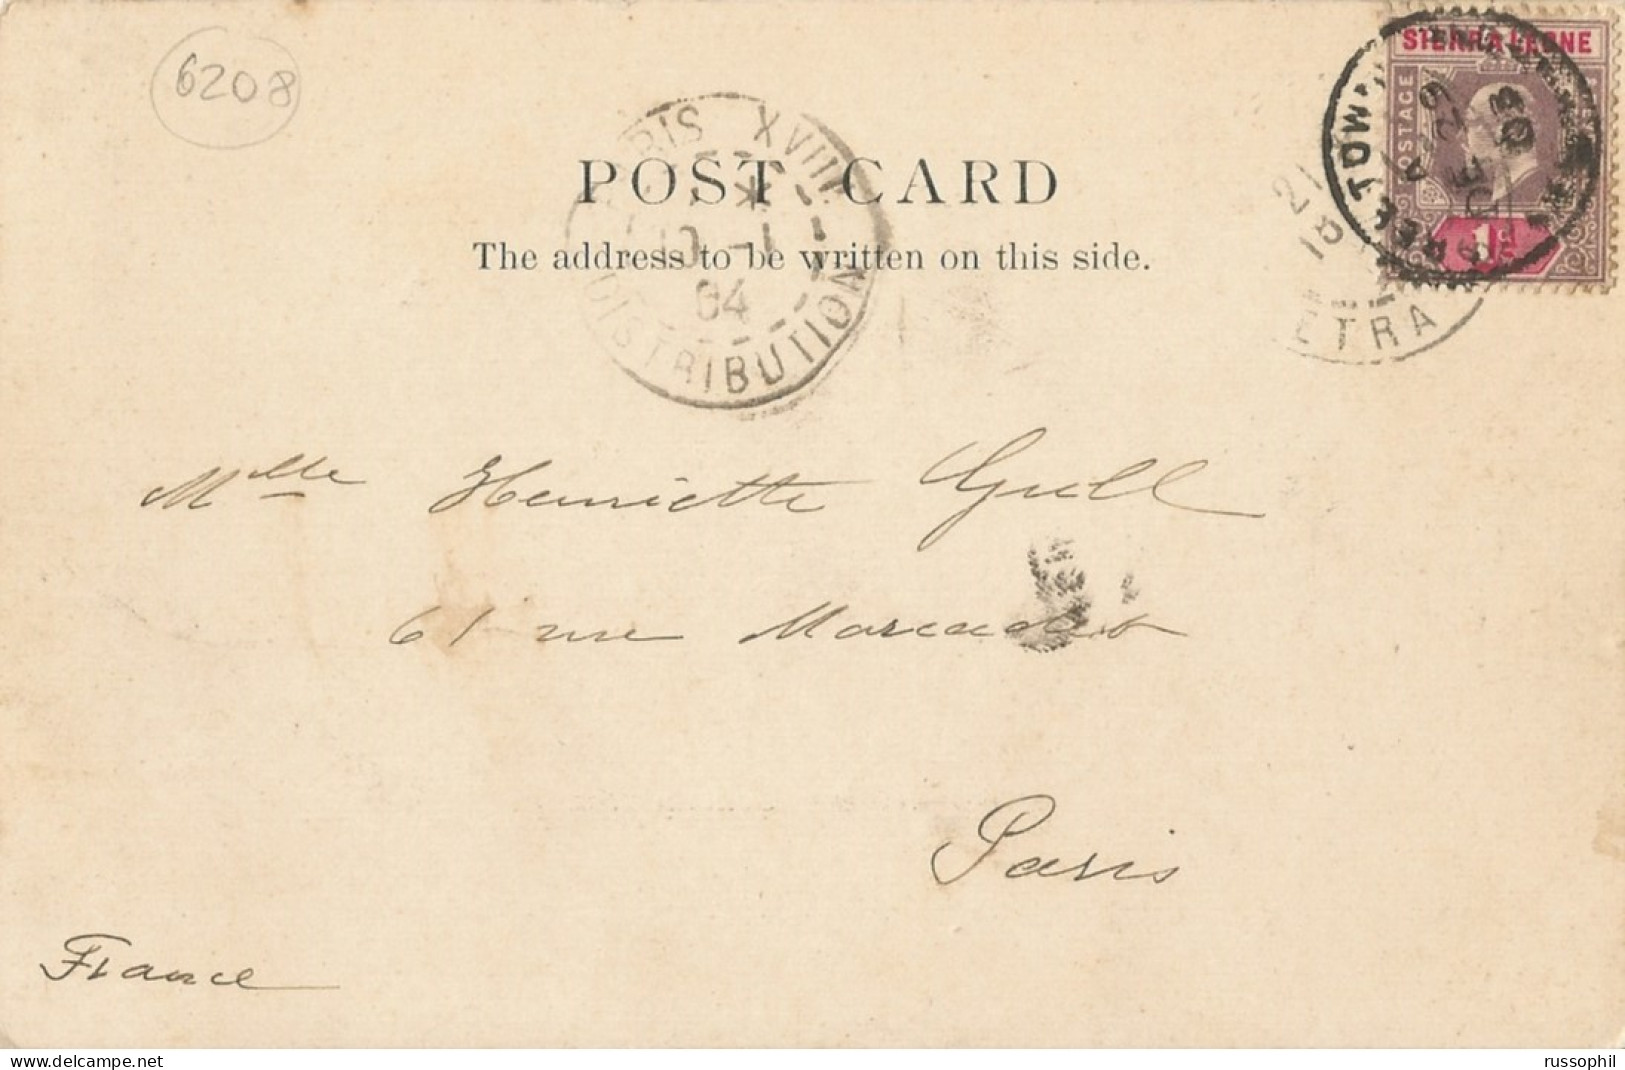 6208
SIERRA LEONE
POSTAGE
1d
FREETOWN
A
29 DE
03
PARIS XVIII
10 -1
04
DISTRIBUTION
ETRA
POST CARD
The address to be written on this side.
Mlle Henriette Grell
61 rue Marcadet
Paris
France
https://russophil.delcampe.net
russophil